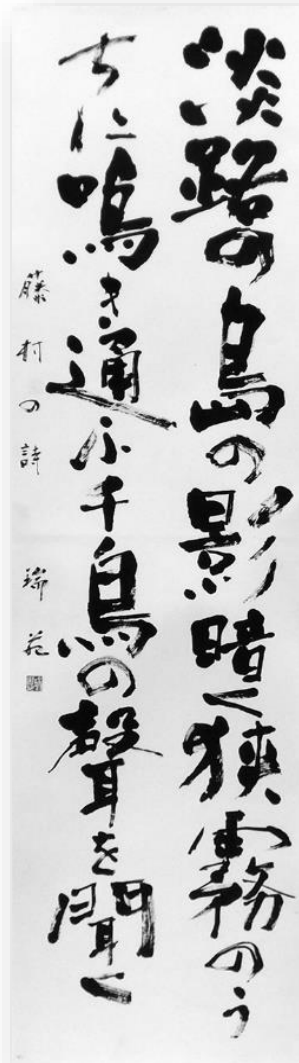 淡路の島の影暗く狭霧のう
ちに鳴き通ふ千鳥の聲を聞く
藤村の詩 瑞苑